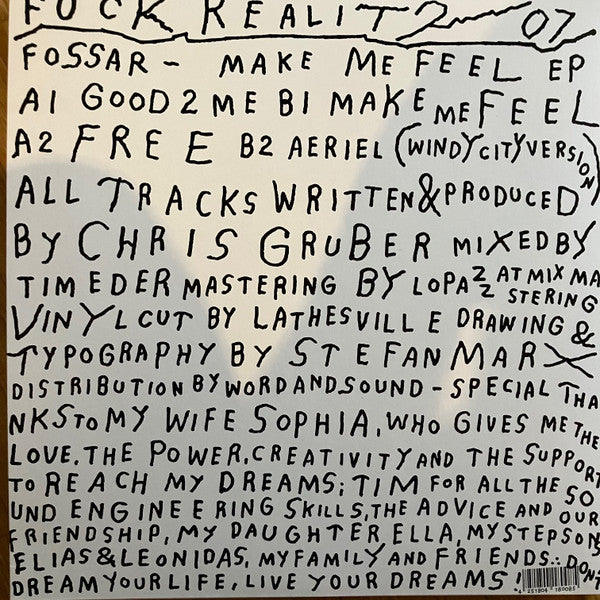 FUCK REALITY 07
FOSSAR - MAKE ME FEEL EP
A1 GOOD 2 ME B1 MAKE ME FEEL
A2 FREE B2 AERIEL (WINDYCITYVERSION)
ALL TRACKS WRITTEN & PRODUCED
BY CHRIS GRUBER MIXED BY
TIM EDER MASTERING BY LOPAZZ AT MIX MASTERING
VINYL CUT BY LATHESVILLE DRAWING &
TYPOGRAPHY BY STEFAN MARX
DISTRIBUTION BY WORDANDSOUND - SPECIAL THA
NKS TO MY WIFE SOPHIA, WHO GIVES ME THE
LOVE, THE POWER, CREATIVITY AND THE SUPPORT
TO REACH MY DREAMS; TIM FOR ALL THE SO
UND ENGINEERING SKILLS, THE ADVICE AND OUR
FRIENDSHIP, MY DAUGHTER ELLA, MY STEPSONS
ELIAS & LEONIDAS, MY FAMILY AND FRIENDS.: DON'T
DREAM YOUR LIFE, LIVE YOUR DREAMS!
4 251804 180085